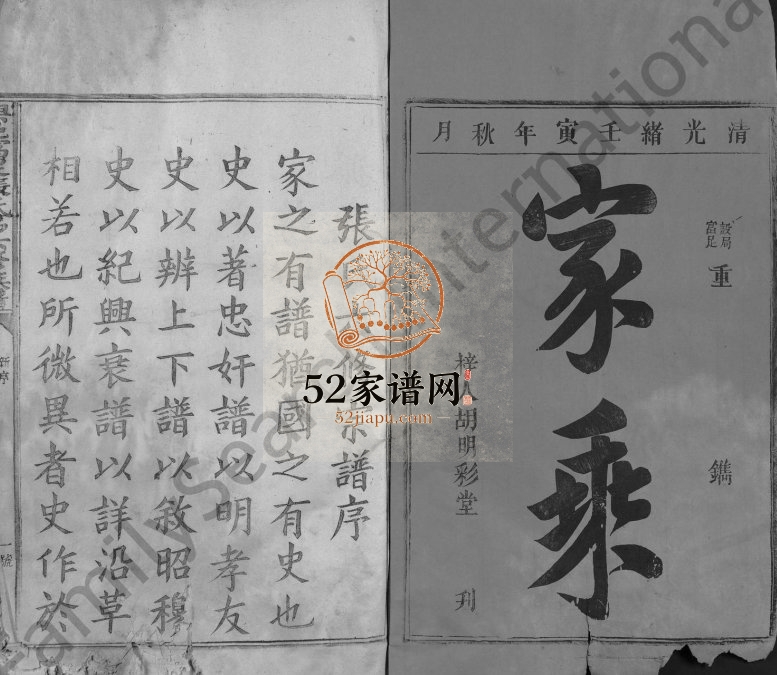 清光緒壬寅年秋月
設局
富足
重鐫
家乘
梓人胡明彩堂刋
張修宗譜序
家之有譜猶國之有史也
史以著忠奸譜以明孝友
史以辨上下譜以敘昭穆
史以紀興衰譜以詳沿革
相若也所微異者史作於
新序
號
52家谱网
52jiapu.com
FamilySearch International